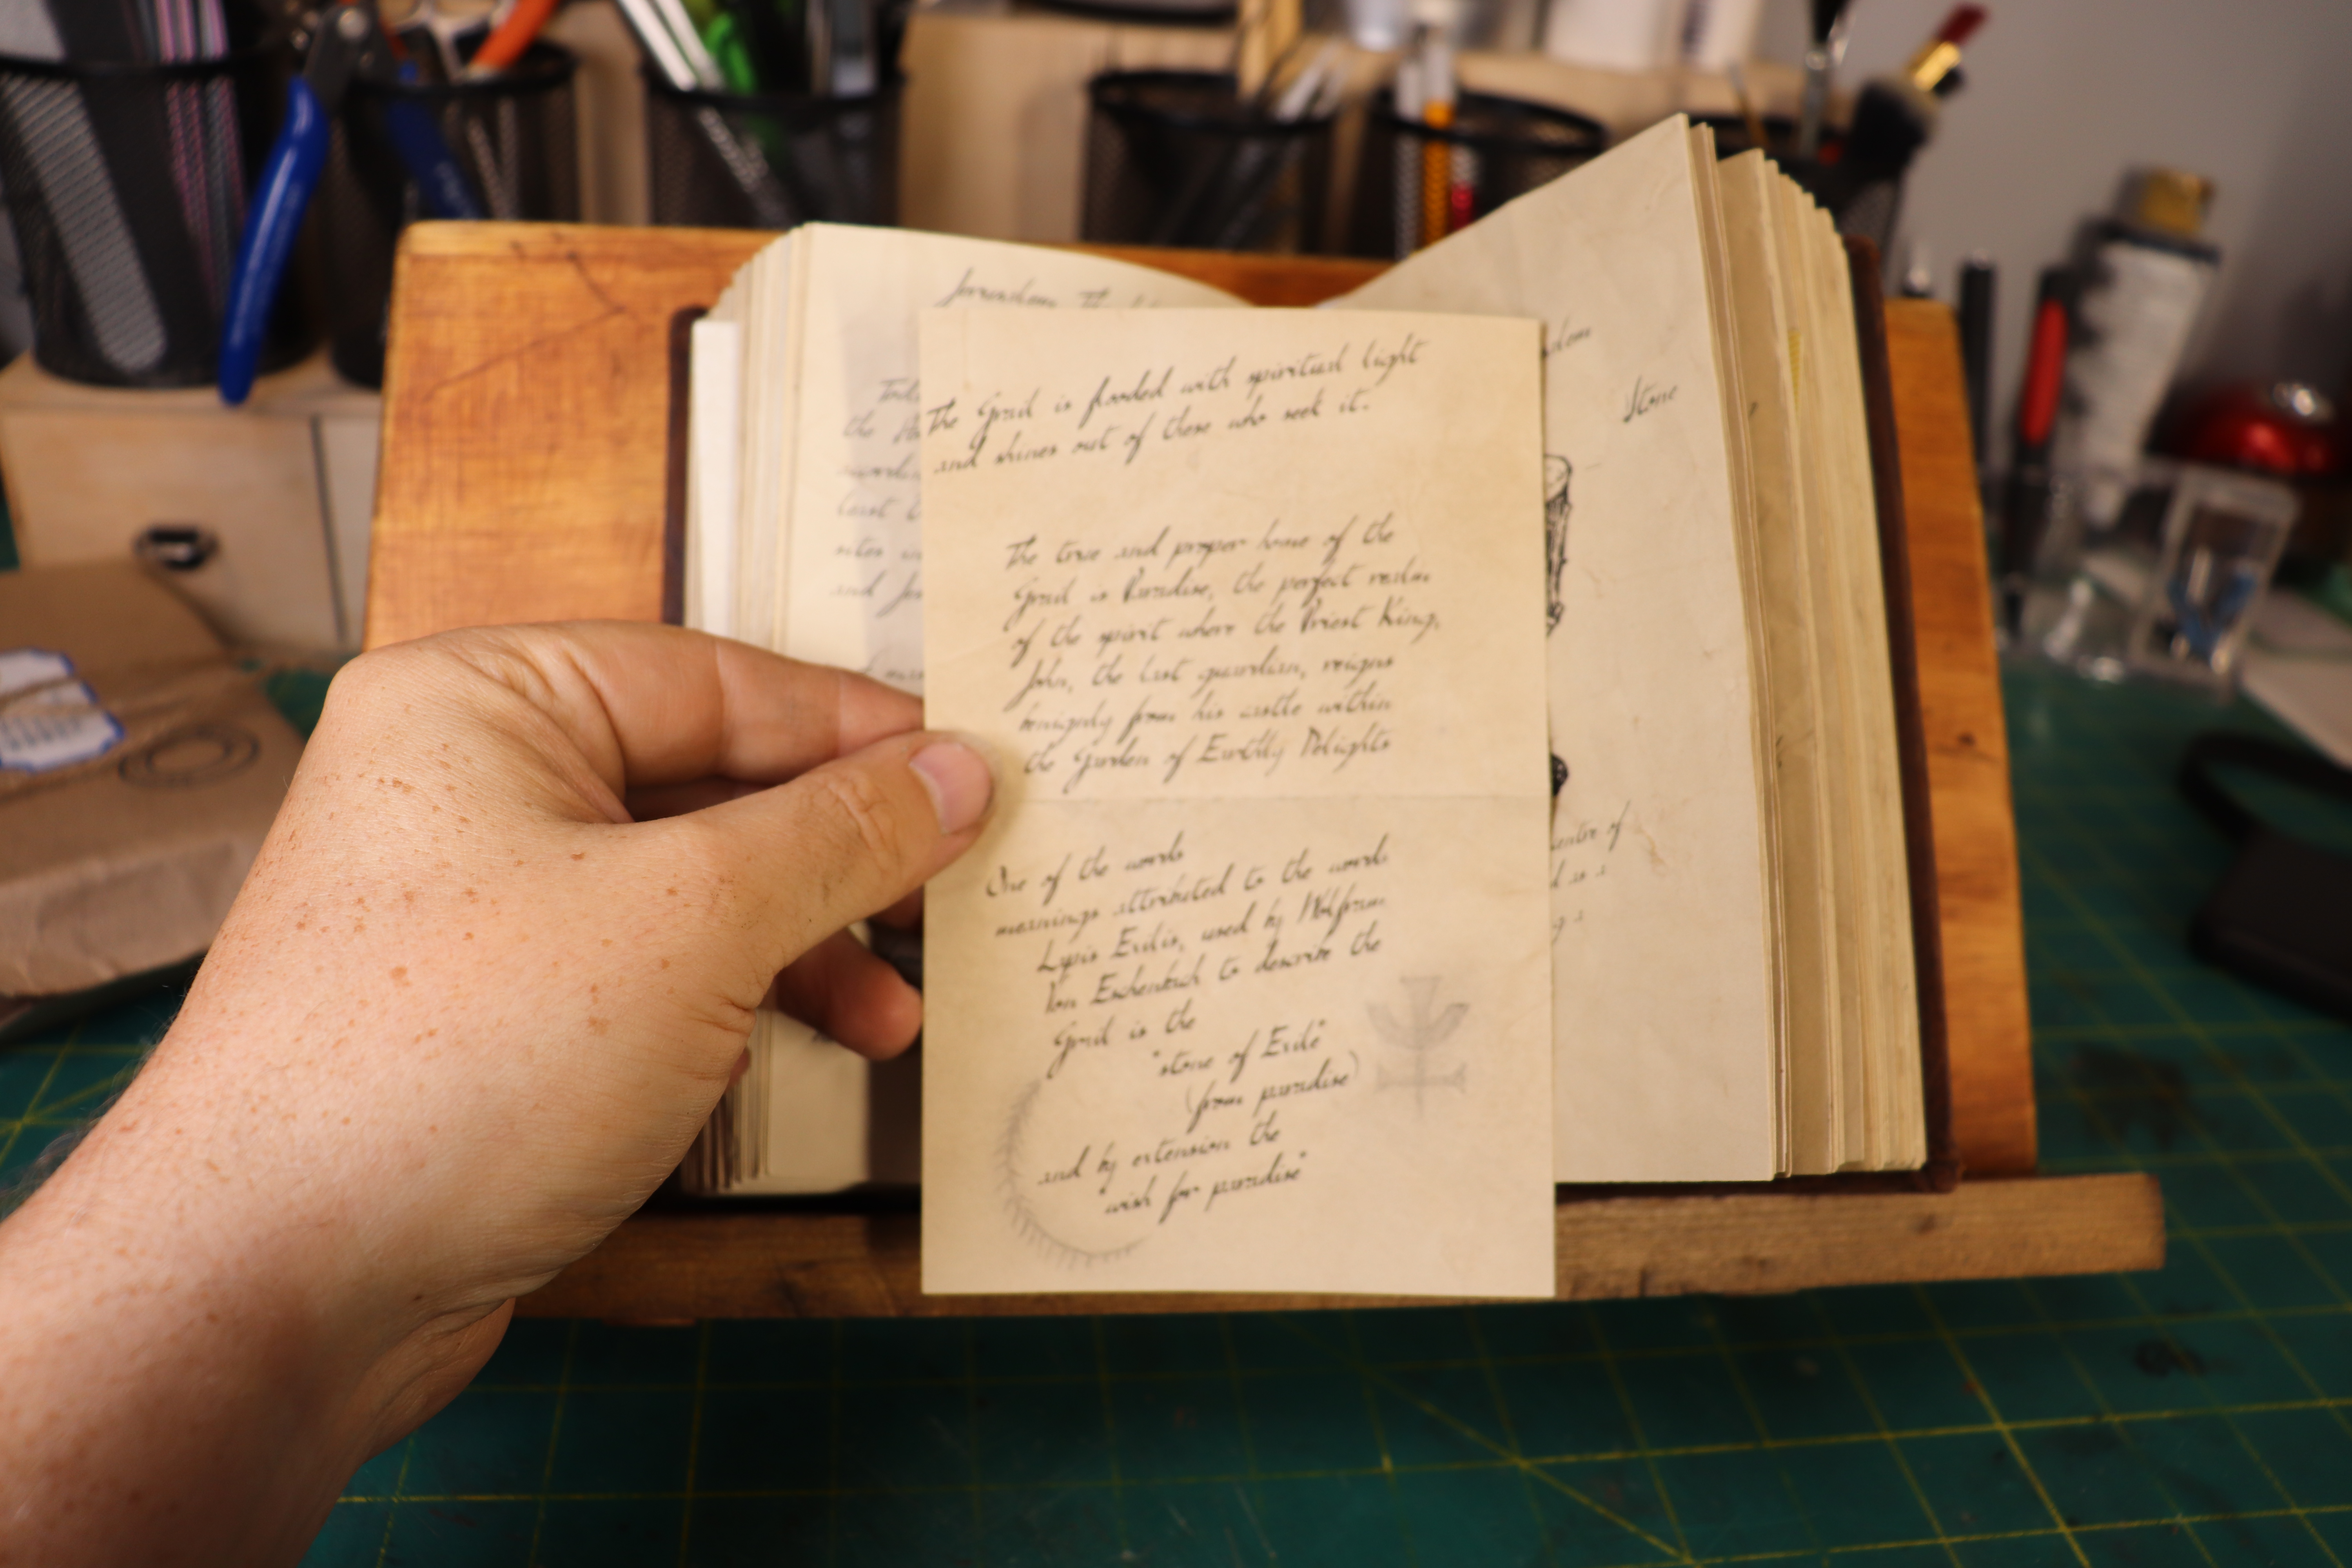 The Grail is flooded with spiritual light
and shines out of those who seek it.
The true and proper home of the
Grail is Paradise, the perfect realm
of the spirit where the Priest King,
John, the last guardian, reigns
benignly from his castle within
the Garden of Earthly Delights
One of the words
meanings attributed to the words
Lysis Exilis, used by Wolfram
Von Eschenbach to describe the
Grail is the
"stone of Exile"
(from paradise)
and by extension the
"wish for paradise"
the
sites
and
Stone
centre of